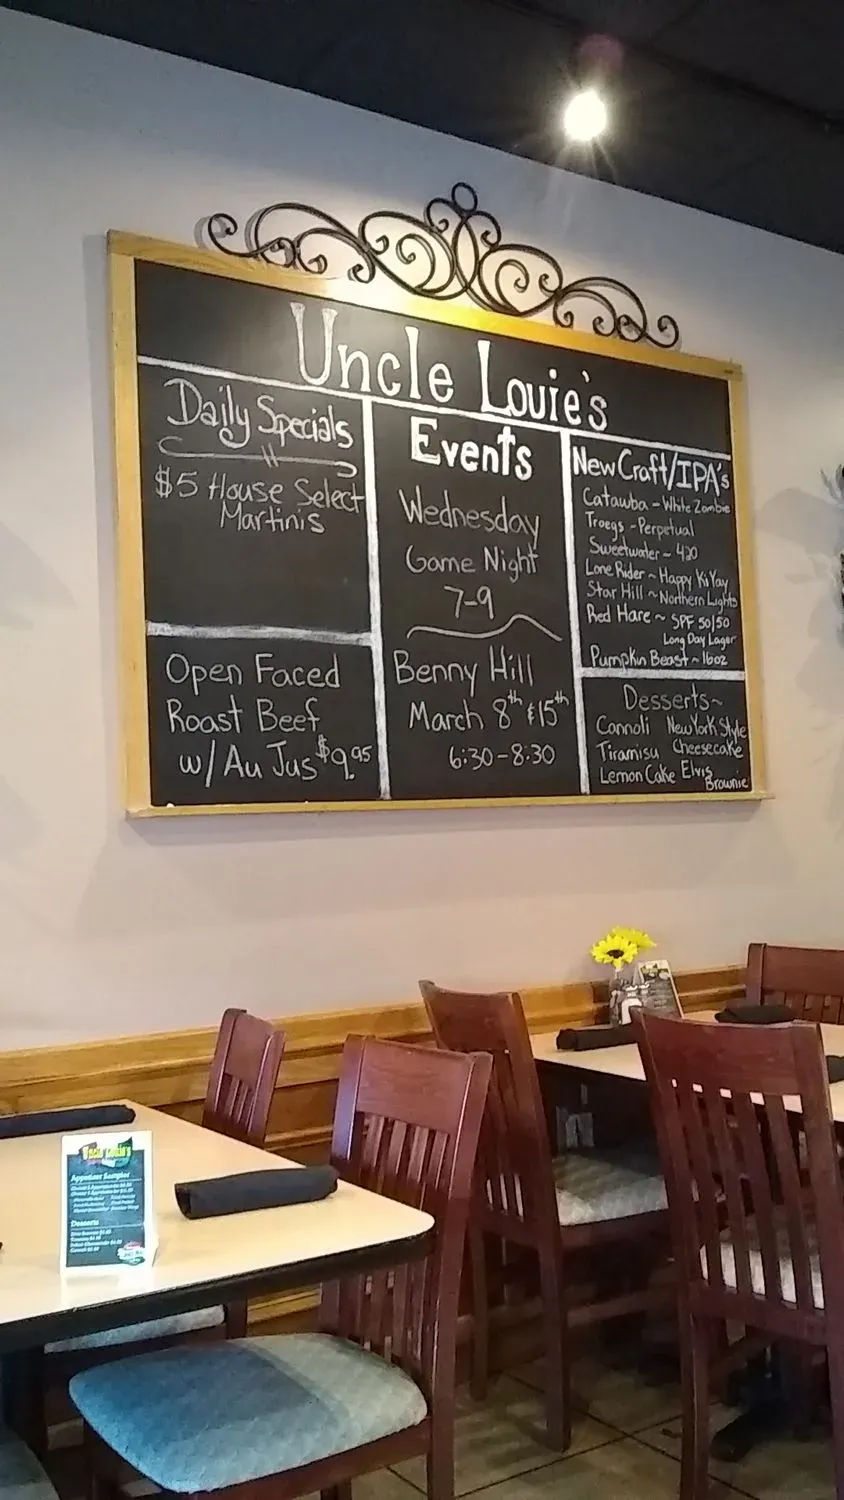 Uncle Louie's
Daily Specials
$5 House Select
Martinis
Open Faced
Roast Beef
w/ Au Jus $9.95
Events
Wednesday
Game Night
7-9
Benny Hill
March 8th & 15th
6:30-8:30
New Craft/IPA's
Catawba - White Zombie
Troegs - Perpetual
Sweetwater ~ 420
Lone Rider ~ Happy Ki Yay
Star Hill ~ Northern Lights
Red Hare ~ SPF 50/50
Long Day Lager
Pumpkin Beast ~ 16oz
Desserts ~
Cannoli New York Style
Tiramisu Cheesecake
Lemon Cake Elvis
Brownie
Uncle Louie's
Appetizer Sampler
Desserts